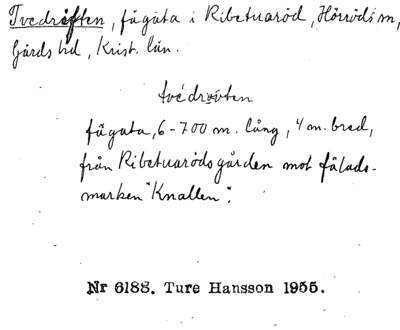 Tvedriften, fägata i Ribetuaröd, Hörröds sn,
Gärds hd, Krist. län.
tvédrøvten
fägata, 6-700 m. lång, 4 m. bred,
från Ribetuarödsgården mot fälads-
marken "Knallen".
Nr 6188. Ture Hansson 1955.